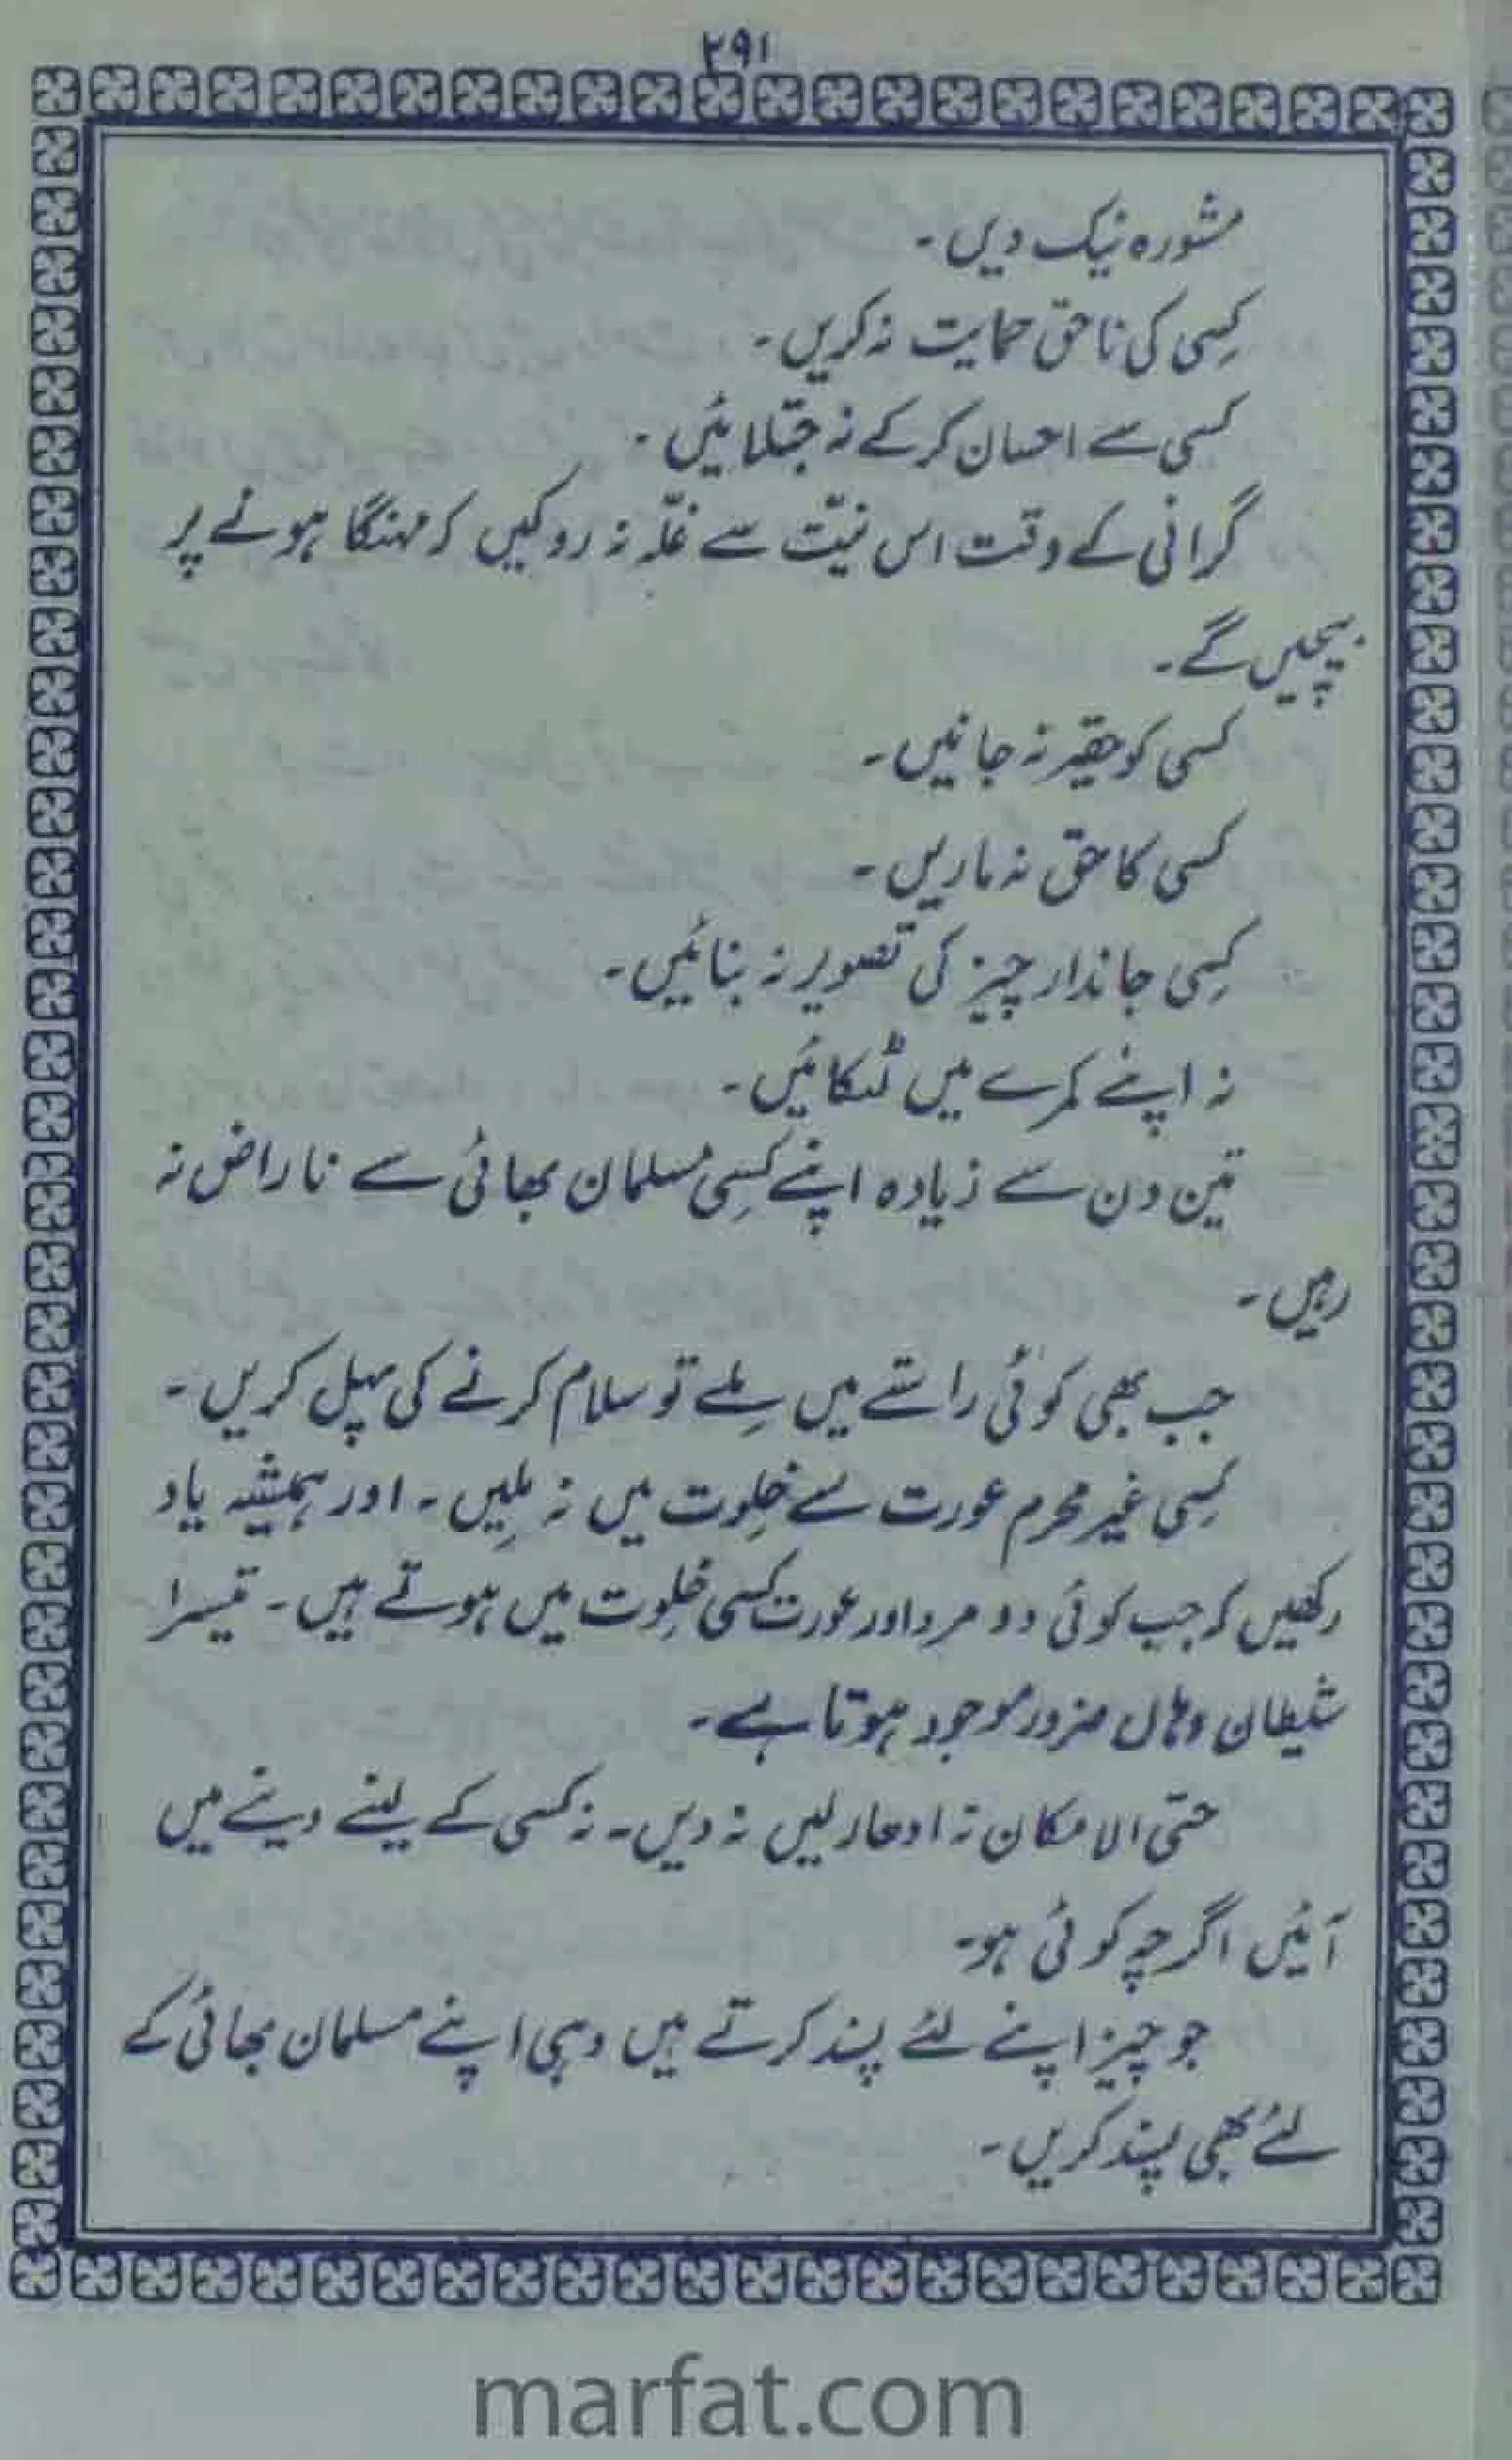 ۲۹۱
مشورہ نیک دیں ۔
کِسی کی ناحق حمایت نہ کریں ۔
کسی سے احسان کر کے نہ جتلائیں ۔
گرانی کے وقت اس نیّت سے غلّہ نہ روکیں کہ مہنگا ہونے پر
بیچیں گے ۔
کسی کو حقیر نہ جانیں ۔
کسی کا حق نہ ماریں ۔
کِسی جاندار چیز کی تصویر نہ بنائیں ۔
نہ اپنے کمرے میں لٹکائیں ۔
تین دن سے زیادہ اپنے کِسی مسلمان بھائی سے ناراض نہ
رہیں ۔
جب بھی کوئی راستے میں مِلے تو سلام کرنے کی پہل کریں ۔
کِسی غیر محرم عورت سے خلوت میں نہ مِلیں ۔ اور ہمیشہ یاد
رکھیں کہ جب کوئی دو مرد اور عورت کسی خلوت میں ہوتے ہیں ۔ تیسرا
شیطان وہاں ضرور موجود ہوتا ہے ۔
حتی الامکان نہ ادھار لیں نہ دیں ۔ نہ کسی کے لینے دینے میں
آئیں اگرچہ کوئی ہو ۔
جو چیز اپنے لئے پسند کرتے ہیں وہی اپنے مسلمان بھائی کے
لئے بھی پسند کریں ۔
marfat.com